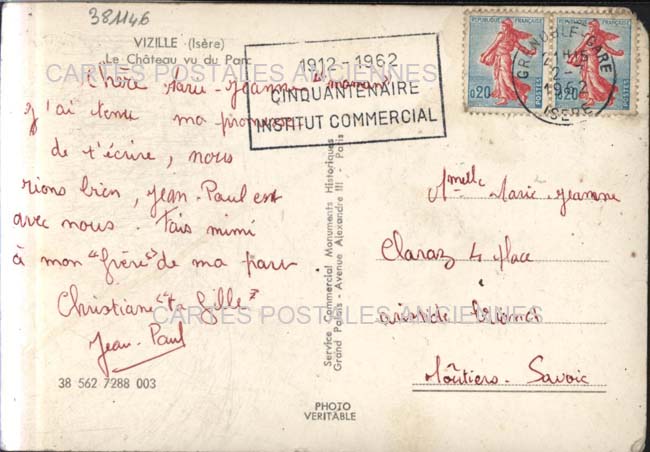 381146
VIZILLE (Isère)
Le Château vu du Parc
CARTES POSTALES ANCIENNES
Chère Marie-Jeanne et maman
j'ai tenu ma promesse
de t'écrire, nous
rions bien, Jean-Paul est
avec nous. Fais mimi
à mon "frère" de ma part
Christiane "ta fille"
Jean-Paul
38 562 7288 003
1912-1962
CINQUANTENAIRE
INSTITUT COMMERCIAL
REPUBLIQUE FRANÇAISE
0,20
POSTES
REPUBLIQUE FRANÇAISE
0,20
POSTES
GRENOBLE-GARE
1962
ISERE
Service Commercial Monuments Historiques
Grand Palais - Avenue Alexandre III - Paris
PHOTO
VERITABLE
Amelle Marie Jeanne
Claraz 4 place
aristide Briand
Moûtiers - Savoie
CARTES POSTALES ANCIENNES